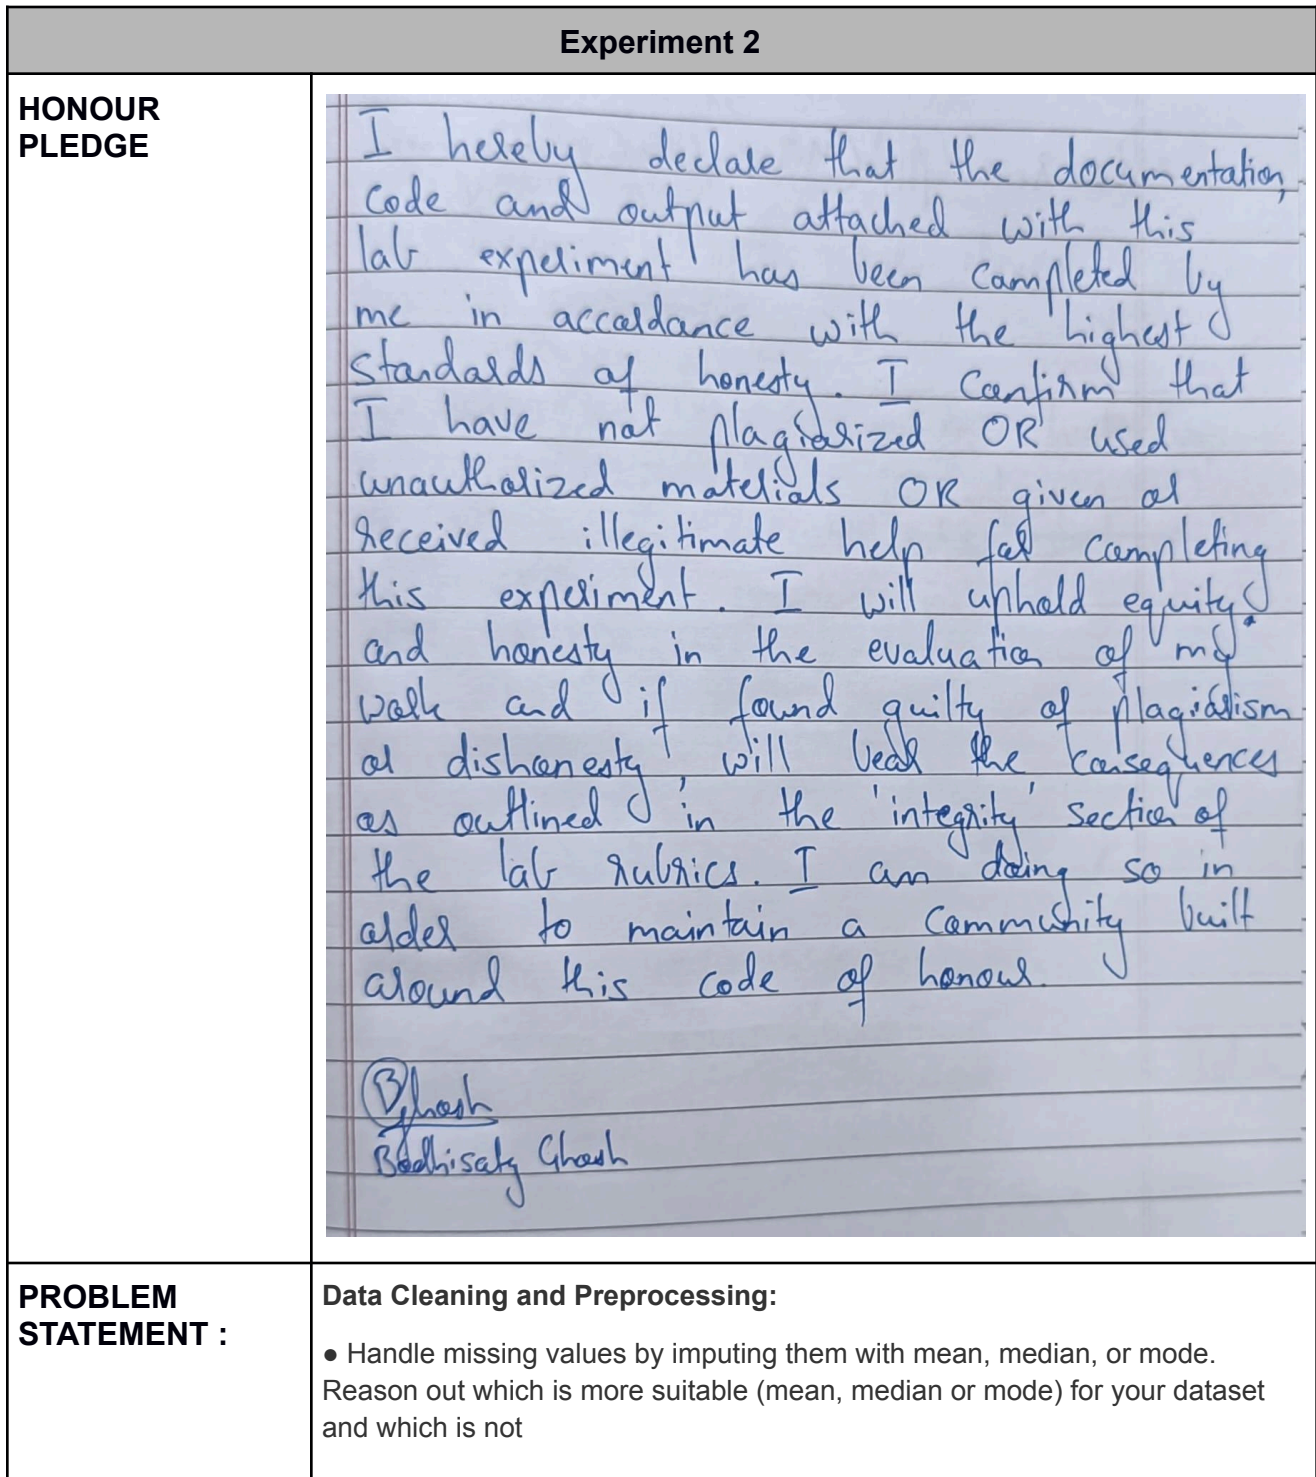 Experiment 2
HONOUR
PLEDGE
I hereby declare that the documentation,
code and output attached with this
lab experiment has been completed by
me in accordance with the highest
standards of honesty. I confirm that
I have not plagiarized OR used
unauthorized materials OR given or
received illegitimate help for completing
this experiment. I will uphold equity
and honesty in the evaluation of my
work and if found guilty of plagiarism
or dishonesty, will bear the consequences
as outlined in the 'integrity' section of
the lab rubrics. I am doing so in
order to maintain a community built
around this code of honour.
BGhosh
Bodhisatya Ghosh
PROBLEM
STATEMENT :
Data Cleaning and Preprocessing:
● Handle missing values by imputing them with mean, median, or mode.
Reason out which is more suitable (mean, median or mode) for your dataset
and which is not